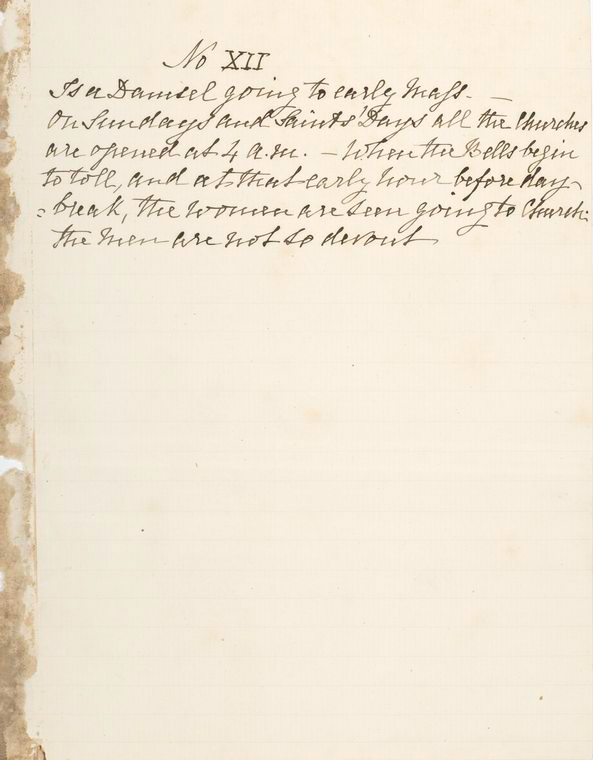 No XII
Is a Damsel going to early Mass. —
On Sundays and Saints' Days all the Churches
are opened at 4 a.m. — When the Bells begin
to toll, and at that early hour before day-
= break, the women are seen going to Church:
the men are not so devout